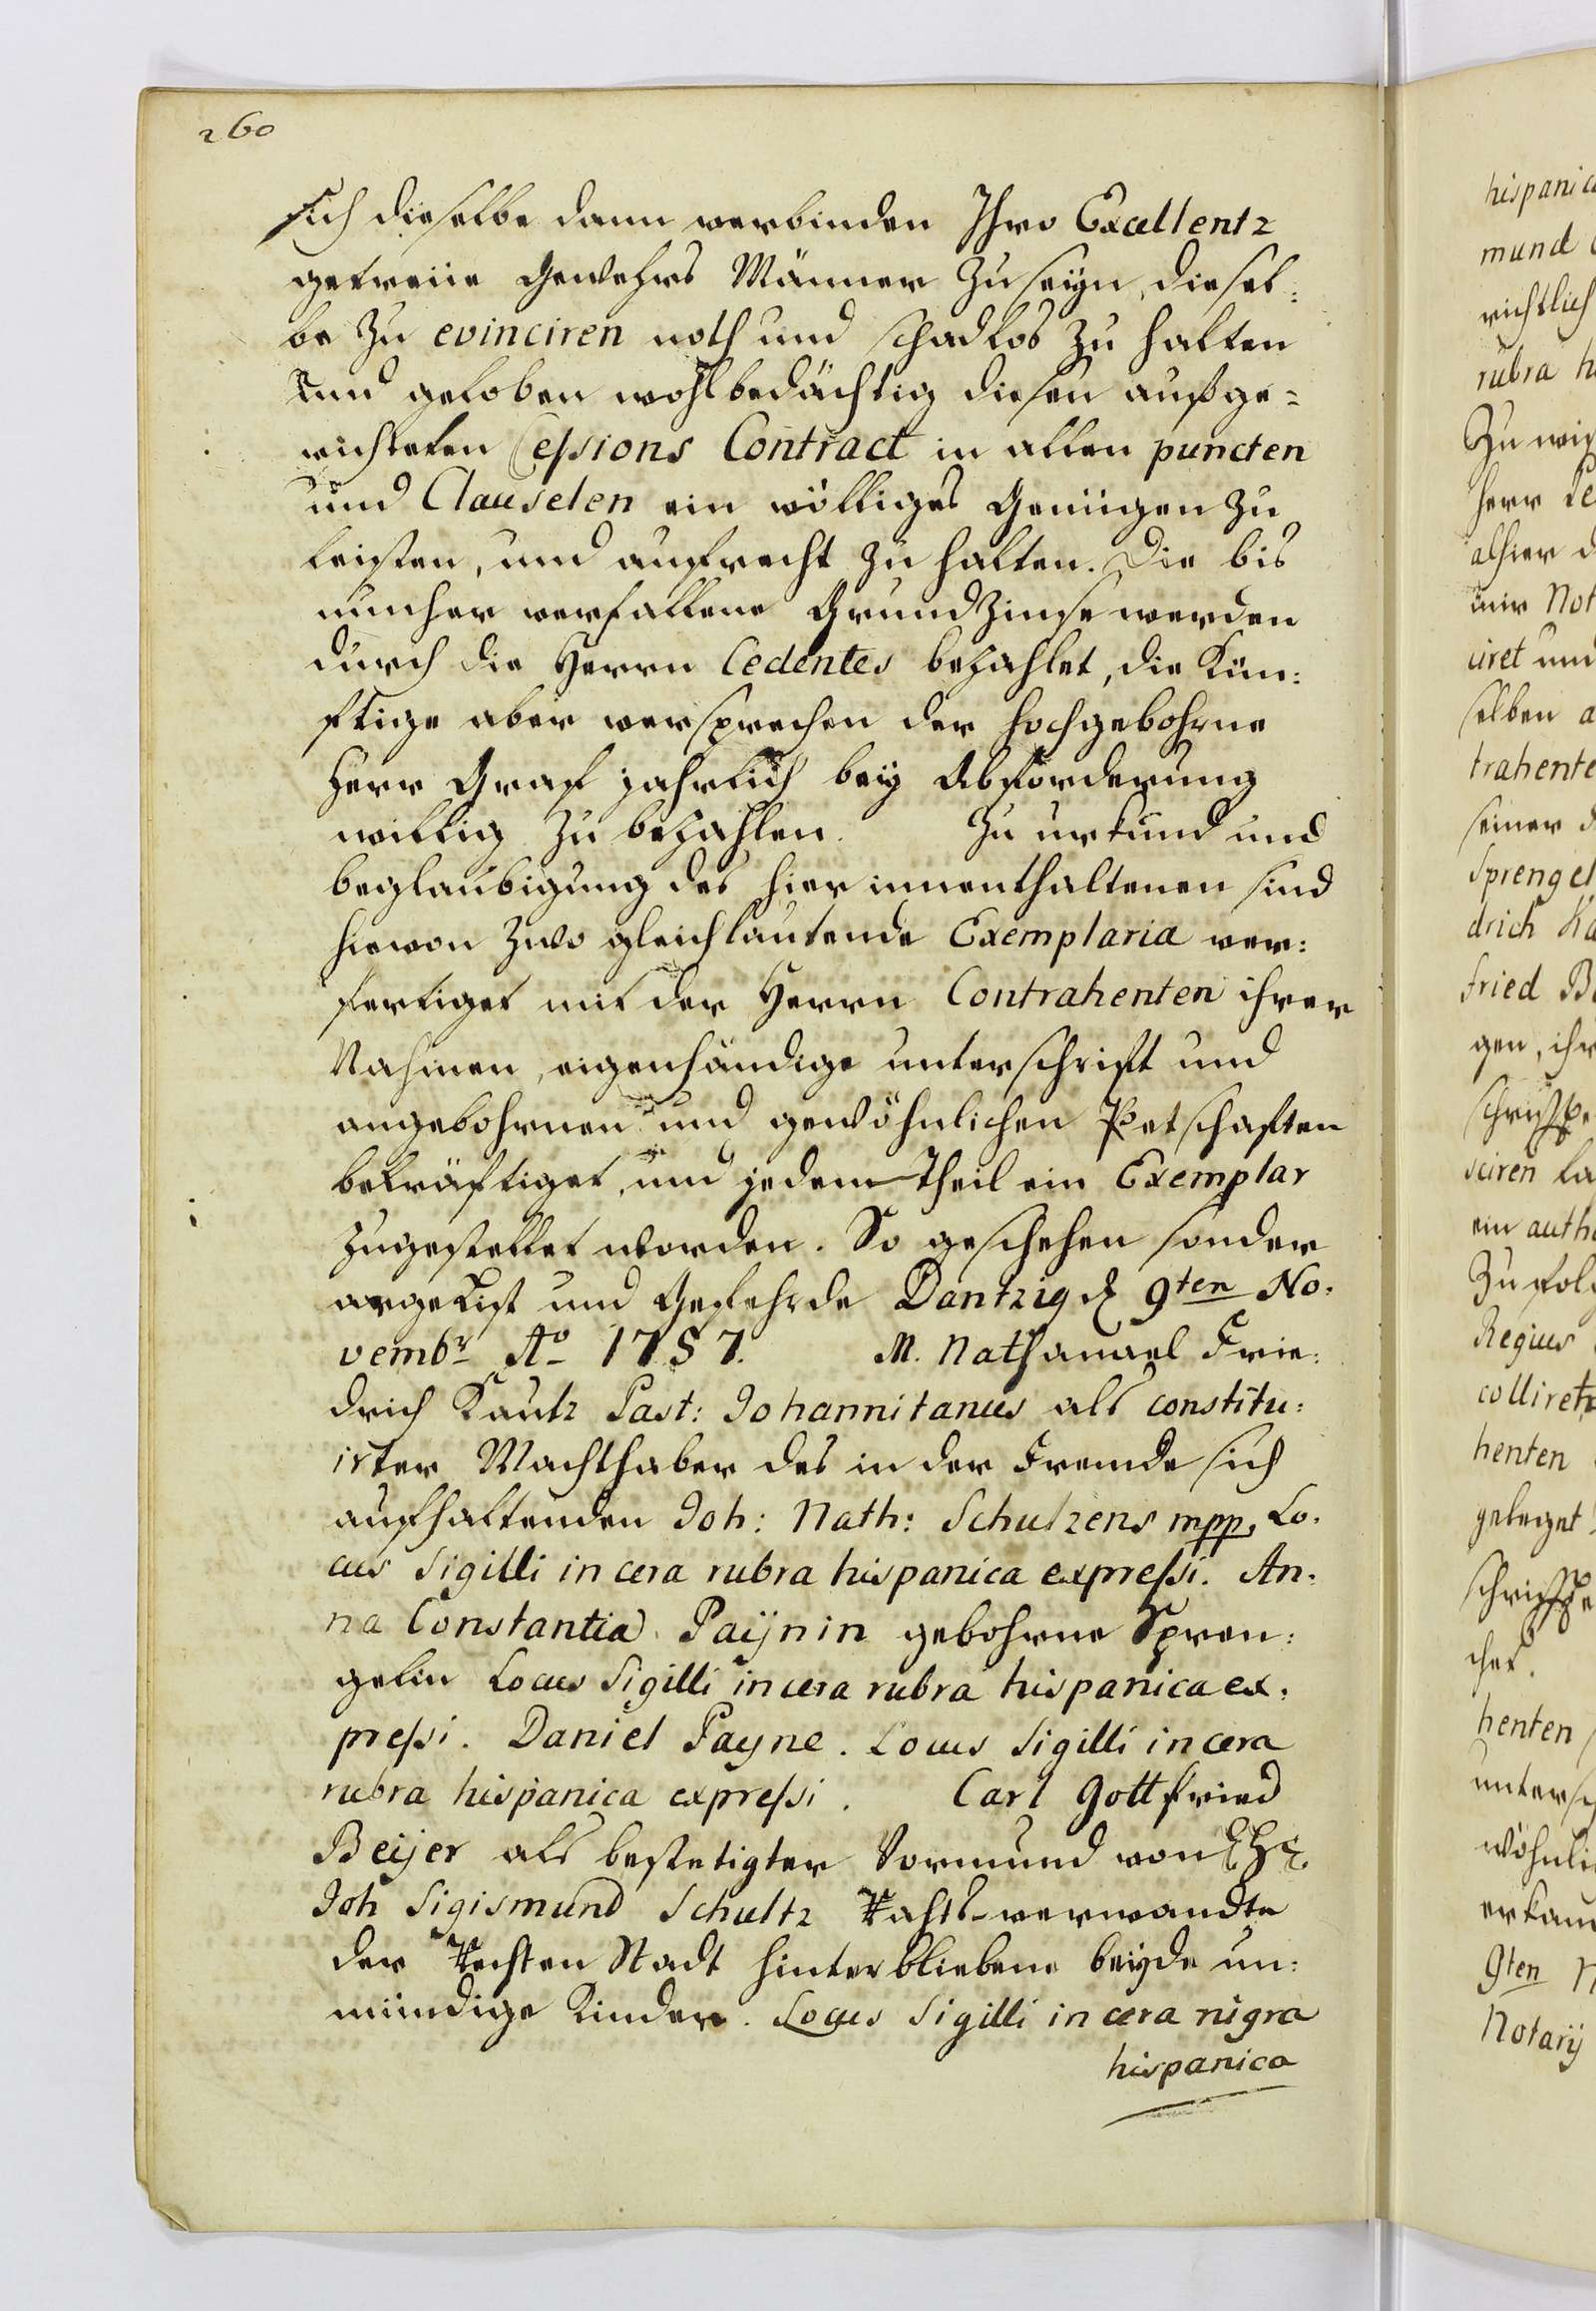 260
sich dieselbe dann verbinden Ihro Excellentz
getreüe Gewehrs Männer zu seÿn, diesel:
be zu evinciren noth und schadlos zu halten
und geloben wohlbedächtig diesen aufge=
richteten Cessions Contract in allen puncten
und Clauselen ein völliges Genügen zu
leisten, und aufrecht zu halten. Die bis
nunher verfallene Grundzinse werden
durch die Herrn Cedentes bezahlet, die Kün:
ftige aber versprechen der Hochgebohrne
Herr Graf jahrlich beÿ Abforderung
willig zu bezahlen. Zu urkund und
beglaubigung des hier innenthaltenen sind
hievon zwo gleichlautende Exemplaria ver:
fertiget mit der Herrn Contrahenten ihrer
Nahmen, eigenhändige unterschrift und
angebohrnen und gewöhnlichen Petschaften
bekräftiget, und jedem Theil ein Exemplar
zugestellet worden. So geschehen sonder
arge List und Gefehrde Dantzig d 9ten No:
vembr Ao 1757. M. Nathanael Frie:
drich Kautz Past: Johannitanus als constitu:
irter Machthaber des in der Fremde sich
aufhaltenden Joh: Nath: Schultzens mpp, Lo:
cus Sigilli in cera rubra hispanica expressi. An:
na Constantia Paÿnin gebohrne Spren:
gelin Locus Sigilli in cera rubra hispanica ex:
pressi. Daniel Payne. Locus Sigilli in cera
rubra hispanica expressi. Carl Gottfried
Beÿer als bestetigter Vormund von
Joh Sigismund Schultz Rahts-verwandte
der Rechten Stadt hinterbliebene beÿde un:
mündige Kinder. Locus Sigilli in cera nigra
hispanica
mund
richtlich
rubra
Zu
Herr
alhier
mir Not
uiret und
selben
trahente
seiner
Sprengel
drich
fried
gen,
sciren
ein auth
Zufol
Regius
colliret
henten
geleget
henten
untersch
wöhnli
erkan
9ten
Notarÿ